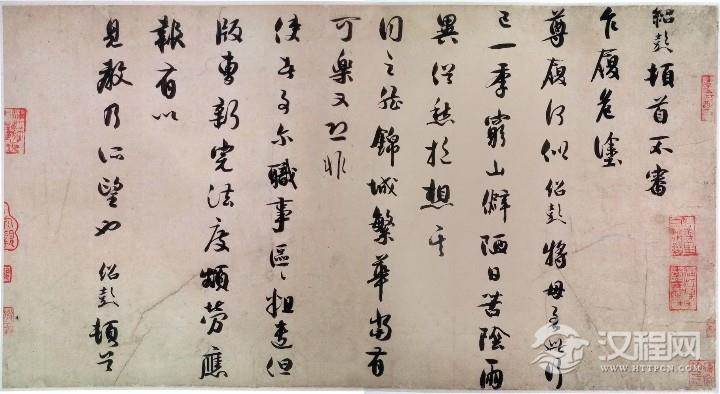 紹彭頓首不審
乍履危塗
尊履何似紹彭將母至此行
已一季窮山僻陋日苦陰雨
異俗愁抱想其
同之然錦城繁華尚有
可樂又恐非
使者事尔職事區〻粗遣但
版曹新完法度頻勞應
報有以
見教乃所望也紹彭頓首
汉程网
WWW.HTTPCN.COM